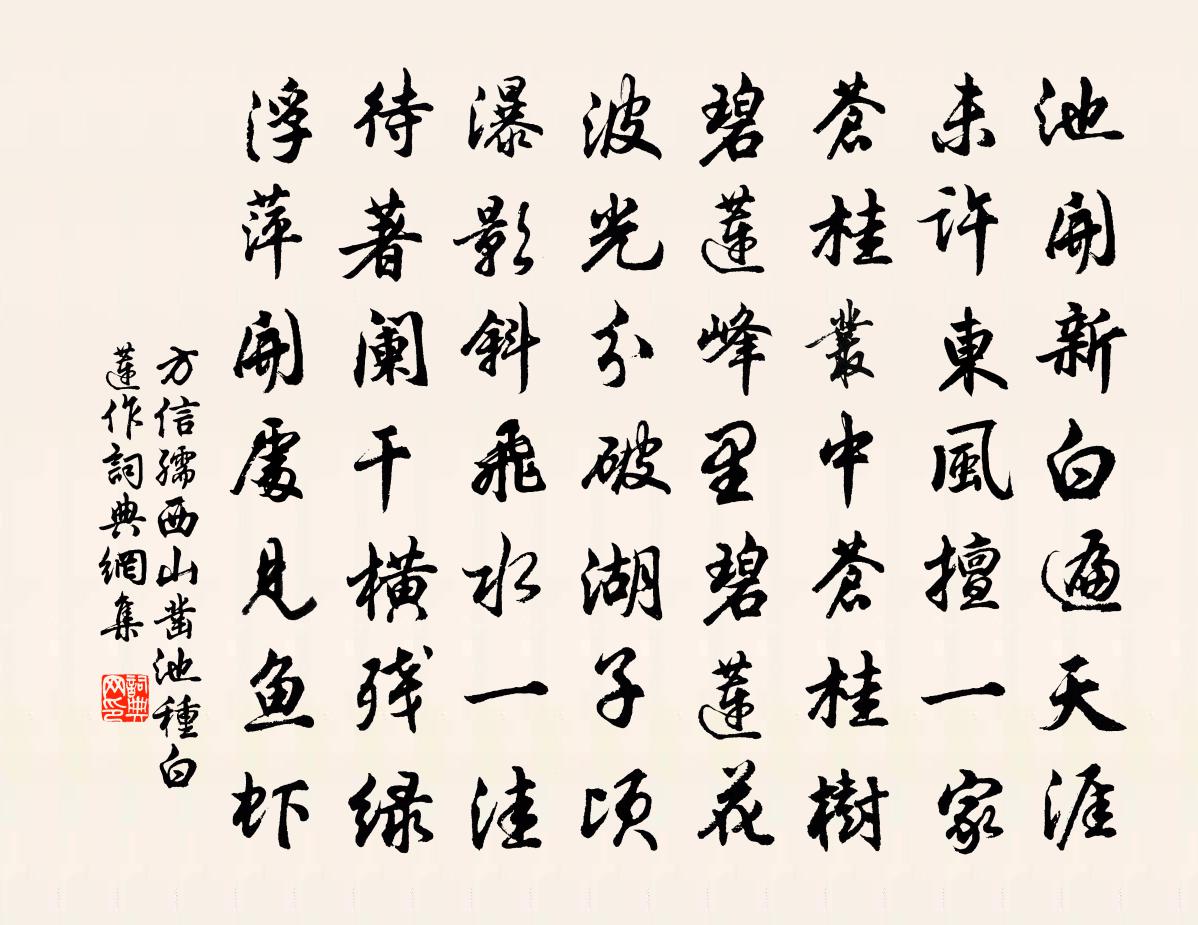 池開新白遍天涯
未許東風擅一家
蒼桂叢中蒼桂樹
碧蓮峰里碧蓮花
波光分破湖子頃
瀑影斜飛水一洼
待著闌干橫殘綠
浮萍開處見鱼虾
方信孺西山凿池種白
蓮作詞典網集
詞典
网印